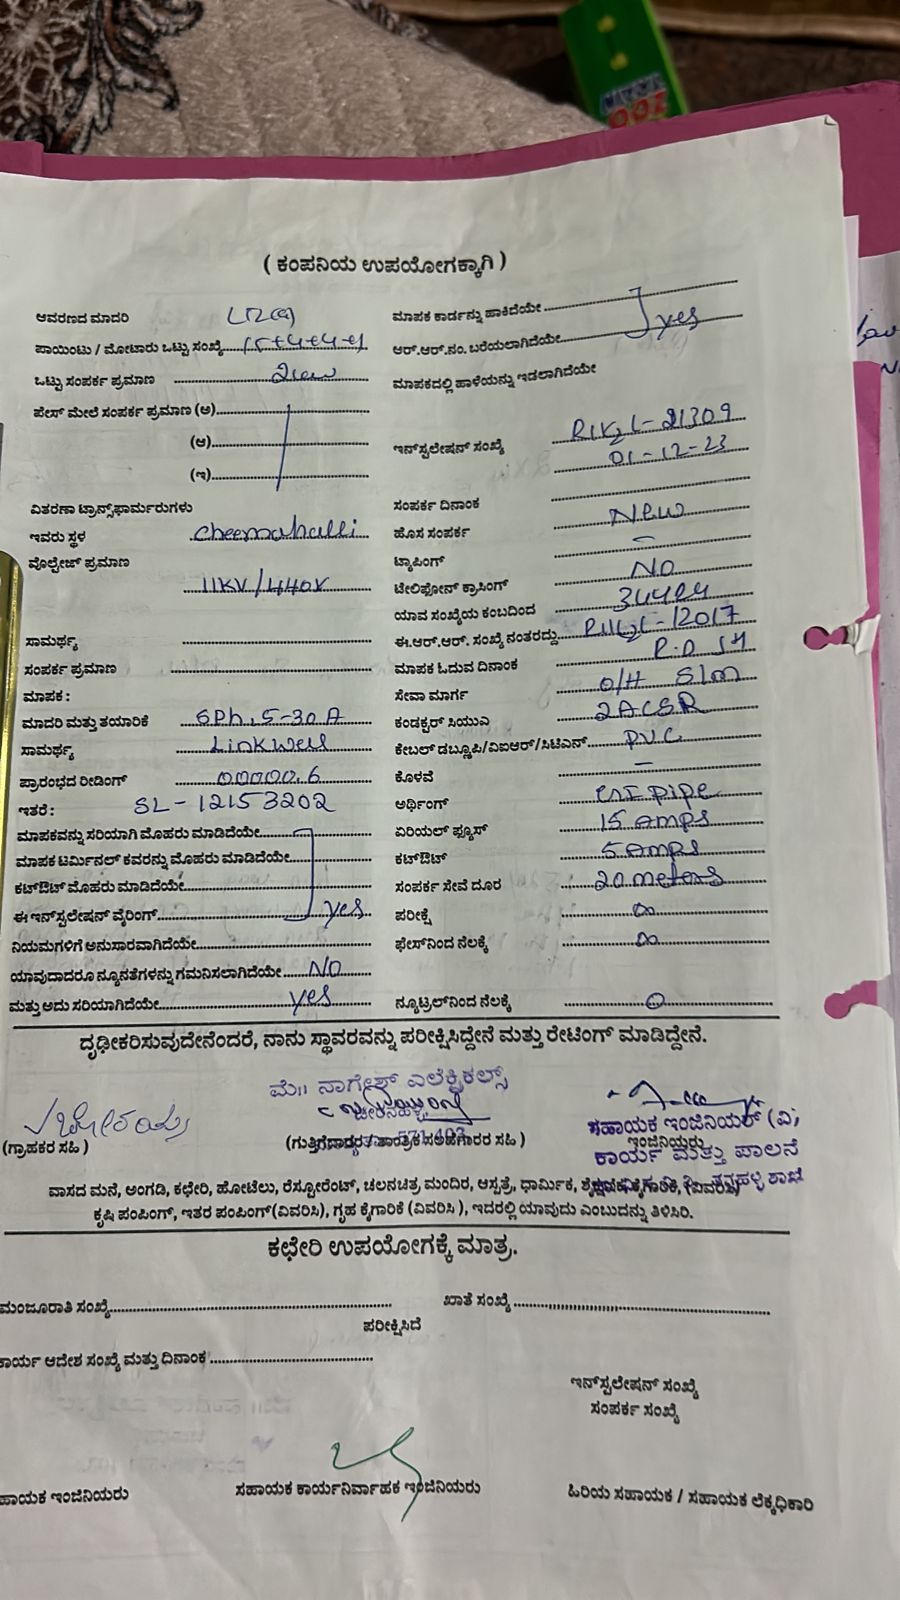 ( ಕಂಪನಿಯ ಉಪಯೋಗಕ್ಕಾಗಿ )
ಆವರಣದ ಮಾದರಿ
ಪಾಯಿಂಟು / ಮೋಟಾರು ಒಟ್ಟು ಸಂಖ್ಯೆ
ಒಟ್ಟು ಸಂಪರ್ಕ ಪ್ರಮಾಣ
ಪೇಸ್ ಮೇಲೆ ಸಂಪರ್ಕ ಪ್ರಮಾಣ (ಅ)
(ಆ)
(ಇ)
ವಿತರಣಾ ಟ್ರಾನ್ಸ್‌ಫಾರ್ಮರುಗಳು
ಇವರು ಸ್ಥಳ Cheemahalli
ವೊಲ್ಟೇಜ್ ಪ್ರಮಾಣ
11KV/440V
ಸಾಮರ್ಥ್ಯ
ಸಂಪರ್ಕ ಪ್ರಮಾಣ
ಮಾಪಕ :
ಮಾದರಿ ಮತ್ತು ತಯಾರಿಕೆ SPh, 5-30A
ಸಾಮರ್ಥ್ಯ Linkwell
ಪ್ರಾರಂಭದ ರೀಡಿಂಗ್ 00000.6
ಇತರೆ : SL-12153202
ಮಾಪಕವನ್ನು ಸರಿಯಾಗಿ ಮೊಹರು ಮಾಡಿದೆಯೇ
ಮಾಪಕ ಟರ್ಮಿನಲ್ ಕವರನ್ನು ಮೊಹರು ಮಾಡಿದೆಯೇ
ಕಟ್‌ಔಟ್ ಮೊಹರು ಮಾಡಿದೆಯೇ
ಈ ಇನ್‌ಸ್ಟಲೇಷನ್ ವೈರಿಂಗ್ yes
ನಿಯಮಗಳಿಗೆ ಅನುಸಾರವಾಗಿದೆಯೇ
ಯಾವುದಾದರೂ ನ್ಯೂನತೆಗಳನ್ನು ಗಮನಿಸಲಾಗಿದೆಯೇ NO
ಮತ್ತು ಅದು ಸರಿಯಾಗಿದೆಯೇ yes
ಮಾಪಕ ಕಾರ್ಡನ್ನು ಹಾಕಿದೆಯೇ
ಆರ್.ಆರ್.ನಂ. ಬರೆಯಲಾಗಿದೆಯೇ yes
ಮಾಪಕದಲ್ಲಿ ಹಾಳೆಯನ್ನು ಇಡಲಾಗಿದೆಯೇ
ಇನ್‌ಸ್ಟಲೇಷನ್ ಸಂಖ್ಯೆ 21309
01-12-23
ಸಂಪರ್ಕ ದಿನಾಂಕ
ಹೊಸ ಸಂಪರ್ಕ New
ಟ್ಯಾಪಿಂಗ್ -
ಟೇಲಿಫೋನ್ ಕ್ರಾಸಿಂಗ್ NO
ಯಾವ ಸಂಖ್ಯೆಯ ಕಂಬದಿಂದ
ಈ.ಆರ್.ಆರ್. ಸಂಖ್ಯೆ ನಂತರದ್ದು
ಮಾಪಕ ಓದುವ ದಿನಾಂಕ
ಸೇವಾ ಮಾರ್ಗ O/H S/m
ಕಂಡಕ್ಟರ್ ಸಿಯುವಿ 2ACSR
ಕೇಬಲ್ ಡಬ್ಲೂಪಿ/ವಿಐಆರ್/ಸಿಟಿಎನ್ PVC
ಕೊಳವೆ -
ಅರ್ಥಿಂಗ್ GI pipe
ಏರಿಯಲ್ ಫ್ಯೂಸ್ 15 Amps
ಕಟ್‌ಔಟ್ 5 Amps
ಸಂಪರ್ಕ ಸೇವೆ ದೂರ 20 meters
ಪರೀಕ್ಷೆ ∞
ಫೇಸ್‌ನಿಂದ ನೆಲಕ್ಕೆ ∞
ನ್ಯೂಟ್ರಲ್‌ನಿಂದ ನೆಲಕ್ಕೆ 0
ದೃಢೀಕರಿಸುವುದೇನೆಂದರೆ, ನಾನು ಸ್ಥಾವರವನ್ನು ಪರೀಕ್ಷಿಸಿದ್ದೇನೆ ಮತ್ತು ರೇಟಿಂಗ್ ಮಾಡಿದ್ದೇನೆ.
ಮೆ॥ ನಾಗೇಶ್ ಎಲೆಕ್ಟ್ರಿಕಲ್ಸ್
ಸಹಾಯಕ ಇಂಜಿನಿಯರ್ (ವಿ)
(ಗ್ರಾಹಕರ ಸಹಿ)
(ಗುತ್ತಿಗೆದಾರರ / ತಾಂತ್ರಿಕ ಸಲಹೆಗಾರರ ಸಹಿ )
ಇಂಜಿನಿಯರು
ಕಾರ್ಯ ಮತ್ತು ಪಾಲನೆ
ವಾಸದ ಮನೆ, ಅಂಗಡಿ, ಕಛೇರಿ, ಹೋಟೆಲು, ರೆಸ್ಟೋರೆಂಟ್, ಚಲನಚಿತ್ರ ಮಂದಿರ, ಆಸ್ಪತ್ರೆ, ಧಾರ್ಮಿಕ, ಶೈಕ್ಷಣಿಕ, ಕೈಗಾರಿಕೆ, (ವಿವರಿಸಿ)
ಕೃಷಿ ಪಂಪಿಂಗ್, ಇತರ ಪಂಪಿಂಗ್(ವಿವರಿಸಿ), ಗೃಹ ಕೈಗಾರಿಕೆ (ವಿವರಿಸಿ ), ಇದರಲ್ಲಿ ಯಾವುದು ಎಂಬುದನ್ನು ತಿಳಿಸಿರಿ.
ಕಛೇರಿ ಉಪಯೋಗಕ್ಕೆ ಮಾತ್ರ.
ಮಂಜೂರಾತಿ ಸಂಖ್ಯೆ
ಖಾತೆ ಸಂಖ್ಯೆ
ಪರೀಕ್ಷಿಸಿದೆ
ಕಾರ್ಯ ಆದೇಶ ಸಂಖ್ಯೆ ಮತ್ತು ದಿನಾಂಕ
ಇನ್‌ಸ್ಟಲೇಷನ್ ಸಂಖ್ಯೆ
ಸಂಪರ್ಕ ಸಂಖ್ಯೆ
ಹಾಯಕ ಇಂಜಿನಿಯರು
ಸಹಾಯಕ ಕಾರ್ಯನಿರ್ವಾಹಕ ಇಂಜಿನಿಯರು
ಹಿರಿಯ ಸಹಾಯಕ / ಸಹಾಯಕ ಲೆಕ್ಕಧಿಕಾರಿ